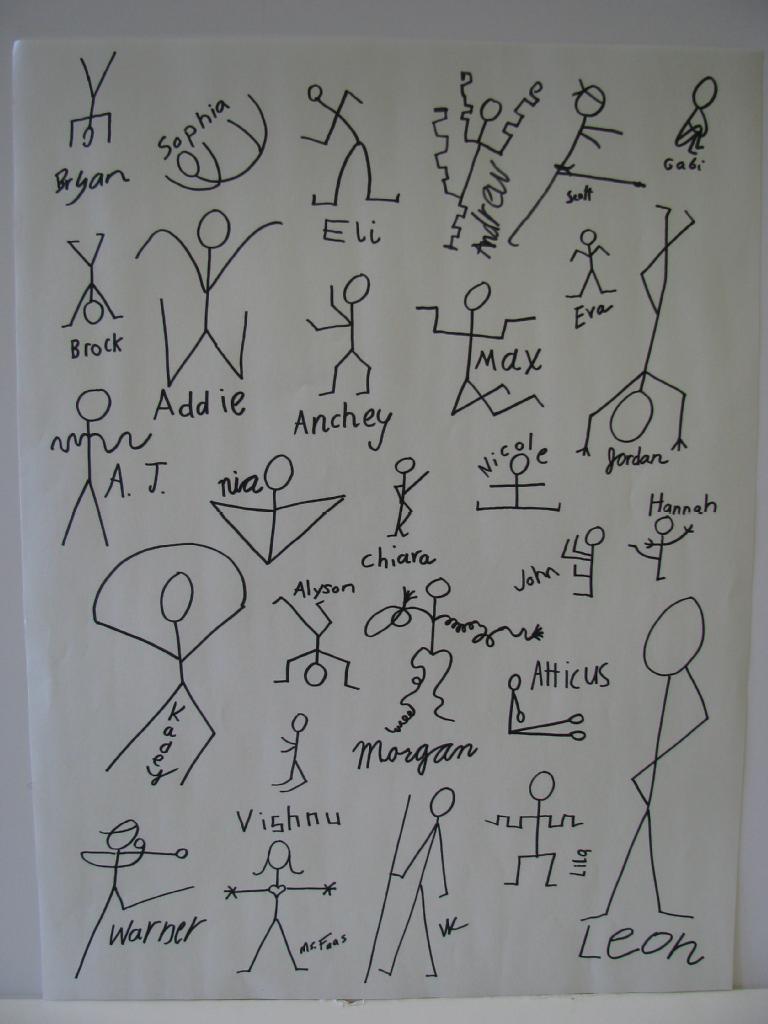 Bryan
Sophia
Eli
Andrew
Scott
Gabi
Brock
Addie
Anchey
Max
Eva
Jordan
A. J.
nia
Chiara
Nicole
Hannah
John
Alyson
Kadey
Morgan
Atticus
Vishnu
Lila
Warner
Ms. Faas
VK
Leon